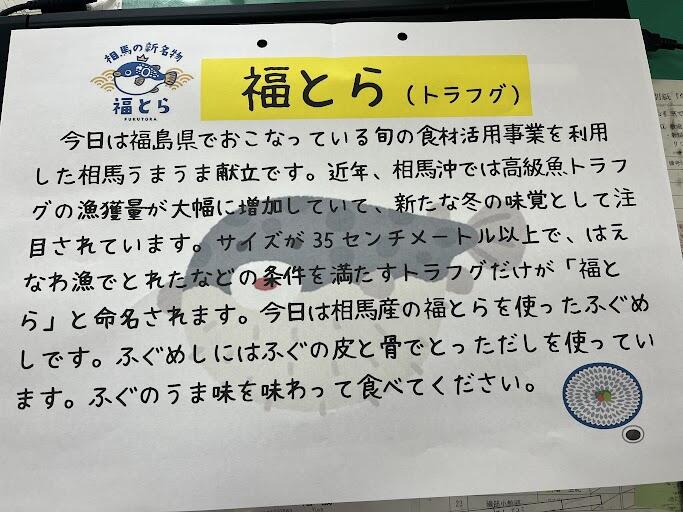 相馬の新名物
福とら
FUKUTORA
福とら（トラフグ）
今日は福島県でおこなっている旬の食材活用事業を利用
した相馬うまうま献立です。近年、相馬沖では高級魚トラフ
グの漁獲量が大幅に増加していて、新たな冬の味覚として注
目されています。サイズが35センチメートル以上で、はえ
なわ漁でとれたなどの条件を満たすトラフグだけが「福と
ら」と命名されます。今日は相馬産の福とらを使ったふぐめ
しです。ふぐめしにはふぐの皮と骨でとっただしを使ってい
ます。ふぐのうま味を味わって食べてください。